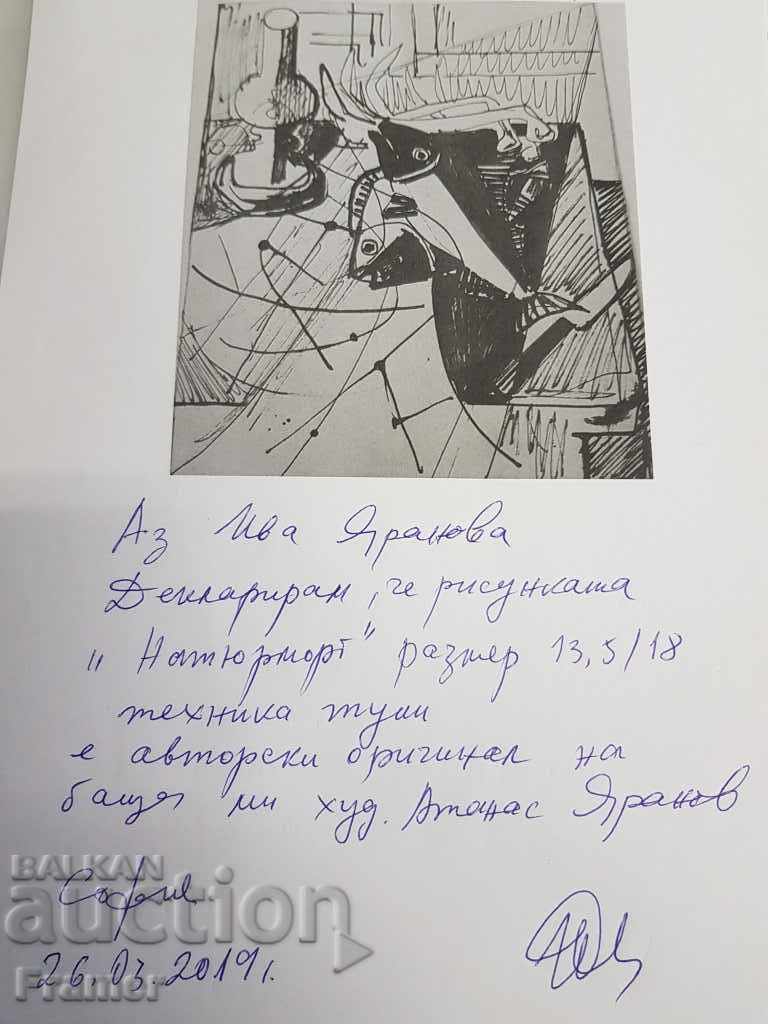 Аз Ива Яранова
Декларирам, че рисунката
"Натюрморт" размер 13,5/18
техника туш
е авторски оригинал на
баща ми худ. Атанас Яранов
София
26.03.2019г.
BALKAN
auction
Framer